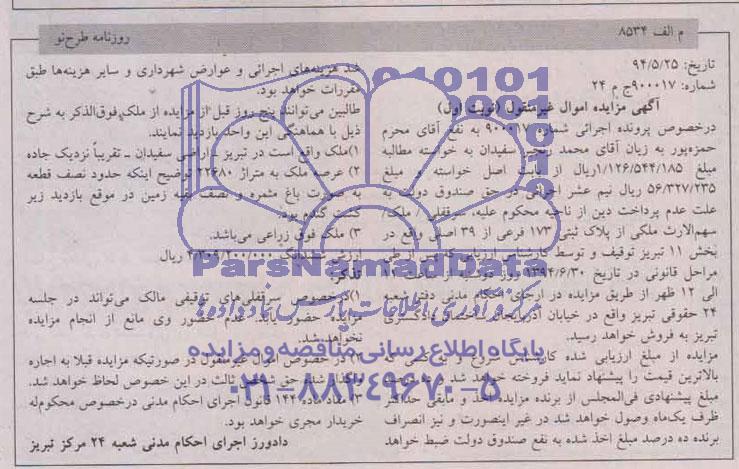 م الف ۸۵۳۴
روزنامه طرح‌نو
تاریخ: ۹۴/۵/۲۵
شماره: ۹۰۰۰۱۷ج م ۲۴
آگهی مزایده اموال غیرمنقول (نوبت اول)
درخصوص پرونده اجرائی شماره ۹۰۰۰۱۷ به نفع آقای محرم
حمزه‌پور به زیان آقای محمد رنجبر سفیدان به خواسته مطالبه
مبلغ ۱/۱۲۶/۵۴۴/۱۸۵ریال از بابت اصل خواسته و مبلغ
۵۶/۳۲۷/۲۳۵ ریال نیم عشر اجرائی در حق صندوق دولت به
علت عدم پرداخت دین از ناحیه محکوم علیه، سرقفلی / ملک/
سهم‌الارث ملکی از پلاک ثبتی ۱۷۳ فرعی از ۳۹ اصلی واقع در
بخش ۱۱ تبریز توقیف و توسط کارشناس ارزیابی که پس از طی
مراحل قانونی در تاریخ ۱۳۹۴/۶/۳۰ روز دوشنبه از ساعت ۱۱
الی ۱۲ ظهر از طریق مزایده در اجرای احکام مدنی دفتر شعبه
۲۴ حقوقی تبریز واقع در خیابان آذربایجان دادگستری
تبریز به فروش خواهد رسید.
مزایده از مبلغ ارزیابی شده کارشناس شروع و به کسی که
بالاترین قیمت را پیشنهاد نماید فروخته خواهد شد
مبلغ پیشنهادی فی‌المجلس از برنده مزایده اخذ و مابقی حداکثر
ظرف یک‌ماه وصول خواهد شد در غیر اینصورت و نیز انصراف
برنده ده درصد مبلغ اخذ شده به نفع صندوق دولت ضبط خواهد
شد هزینه‌های اجرائی و عوارض شهرداری و سایر هزینه‌ها طبق
مقررات خواهد بود.
طالبین می‌توانند پنج روز قبل از مزایده از ملک فوق‌الذکر به شرح
ذیل با هماهنگی این واحد بازدید نمایند.
۱)ملک واقع است در تبریز ـ اراضی سفیدان ـ تقریباً نزدیک جاده
۲) عرصه ملک به متراژ ۲۲۶۸۰ توضیح اینکه حدود نصف قطعه
به صورت باغ مثمره و نصف بقیه زمین در موقع بازدید زیر
کشت گندم بود.
۳) ملک فوق زراعی می‌باشد.
ارزش ششدانگ ۴/۳۰۹/۲۰۰/۰۰۰ ریال
تذکر:
۱)درخصوص سرقفلی‌های توقیفی مالک می‌تواند در جلسه
مزایده حضور یابد. عدم حضور وی مانع از انجام مزایده
نخواهد شد.
۲)در خصوص اموال غیرمنقول در صورتیکه مزایده قبلا به اجاره
واگذار شده حق شخص ثالث در این خصوص لحاظ خواهد شد.
۳) مفاد ماده ۱۴۴ قانون اجرای احکام مدنی درخصوص محکوم‌له
خریدار مجری خواهد بود.
دادورز اجرای احکام مدنی شعبه ۲۴ مرکز تبریز
ParsNamad Data
مرکز فرآوری اطلاعات پارس نماد داده‌ها
پایگاه اطلاع رسانی مناقصه و مزایده
۰۲۱-۸۸۳۴۹۶۷۰-۵